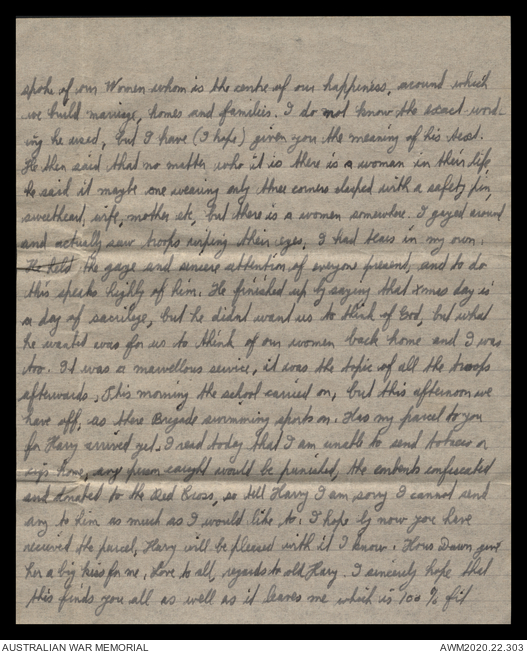 spoke of our Women whom is the centre of our happiness, around which
we build marriage, homes and families. I do not know the exact word-
ing he used, but I have (I hope) given you the meaning of his text.
He then said that no matter who it is there is a woman in their life
he said it maybe one wearing only three corners clasped with a safety pin,
sweetheart, wife, mother etc, but there is a women somewhere. I gazed around
and actually saw troops wiping their eyes, I had tears in my own.
He held the gaze and sincere attention of everyone present, and to do
this speaks highly of him. He finished up by saying that Xmas day is
a day of sacrilege, but he didnt want us to think of God, but what
he wanted was for us to think of our women back home and I was
too. It was a marvellous service, it was the topic of all the troops
afterwards. This morning the school carried on, but this afternoon we
have off, as there Brigade swimming sports on. Has my parcel to you
for Harry arrived yet. I read today that I am unable to send tobacco or
cigs home, any person caught would be punished, the contents confiscated
and donated to the Red Cross, so tell Harry I am sorry I cannot send
any to him as much as I would like to. I hope by now you have
received the parcel, Harry will be pleased with it I know. Hows Dawn give
her a big kiss for me, Love to all, regards to old Harry. I sincerely hope that
this finds you all as well as it leaves me which is 100% fit
AUSTRALIAN WAR MEMORIAL
AWM2020.22.303